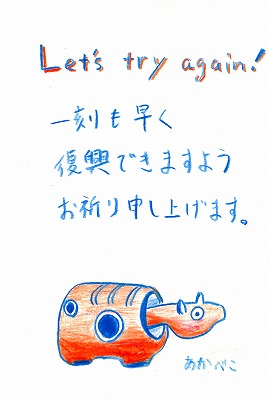 Let's try again!
一刻も早く
復興できますよう
お祈り申し上げます。
あかべこ